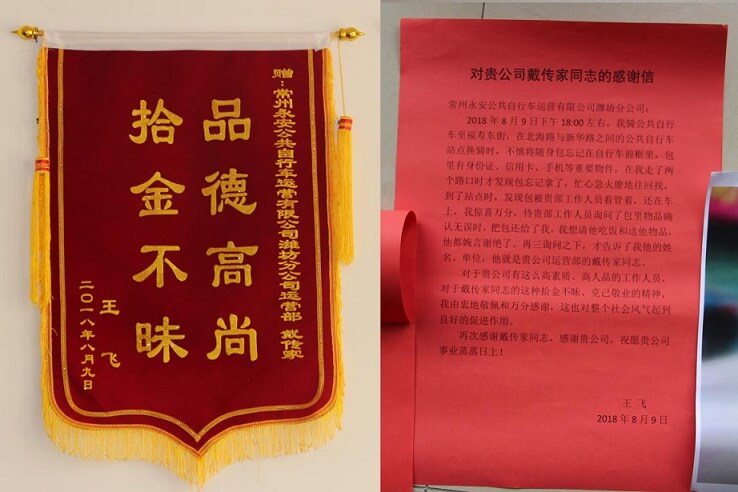 赠：常州永安公共自行车运营有限公司潍坊分公司运营部 戴传家
品德高尚
拾金不昧
王飞
二〇一八年八月九日
对贵公司戴传家同志的感谢信
常州永安公共自行车运营有限公司潍坊分公司：
2018年8月9日下午18:00左右，我骑公共自行
车至福寿东街，在北海路与新华路之间的公共自行车
站点换骑时，不慎将随身包忘记在自行车前框里，包
里有身份证、信用卡、手机等重要物件，在我走了两
个路口时才发现包忘记拿了，忙心急火燎地往回找，
到了站点时，发现包被贵部工作人员看管着，还在车
上，我惊喜万分，待贵部工作人员询问了包里物品确
认无误时，把包还给了我，我想请他吃饭和送他物品，
他都婉言谢绝了。再三询问之下，才告诉了我他的姓
名、单位，他就是贵公司运营部的戴传家同志。
对于贵公司有这么高素质、高人品的工作人员，
对于戴传家同志的这种拾金不昧、克己敬业的精神，
我由衷地敬佩和万分感谢，这也对整个社会风气起到
良好的促进作用。
再次感谢戴传家同志，感谢贵公司，祝愿贵公司
事业蒸蒸日上！
王 飞
2018年8月9日